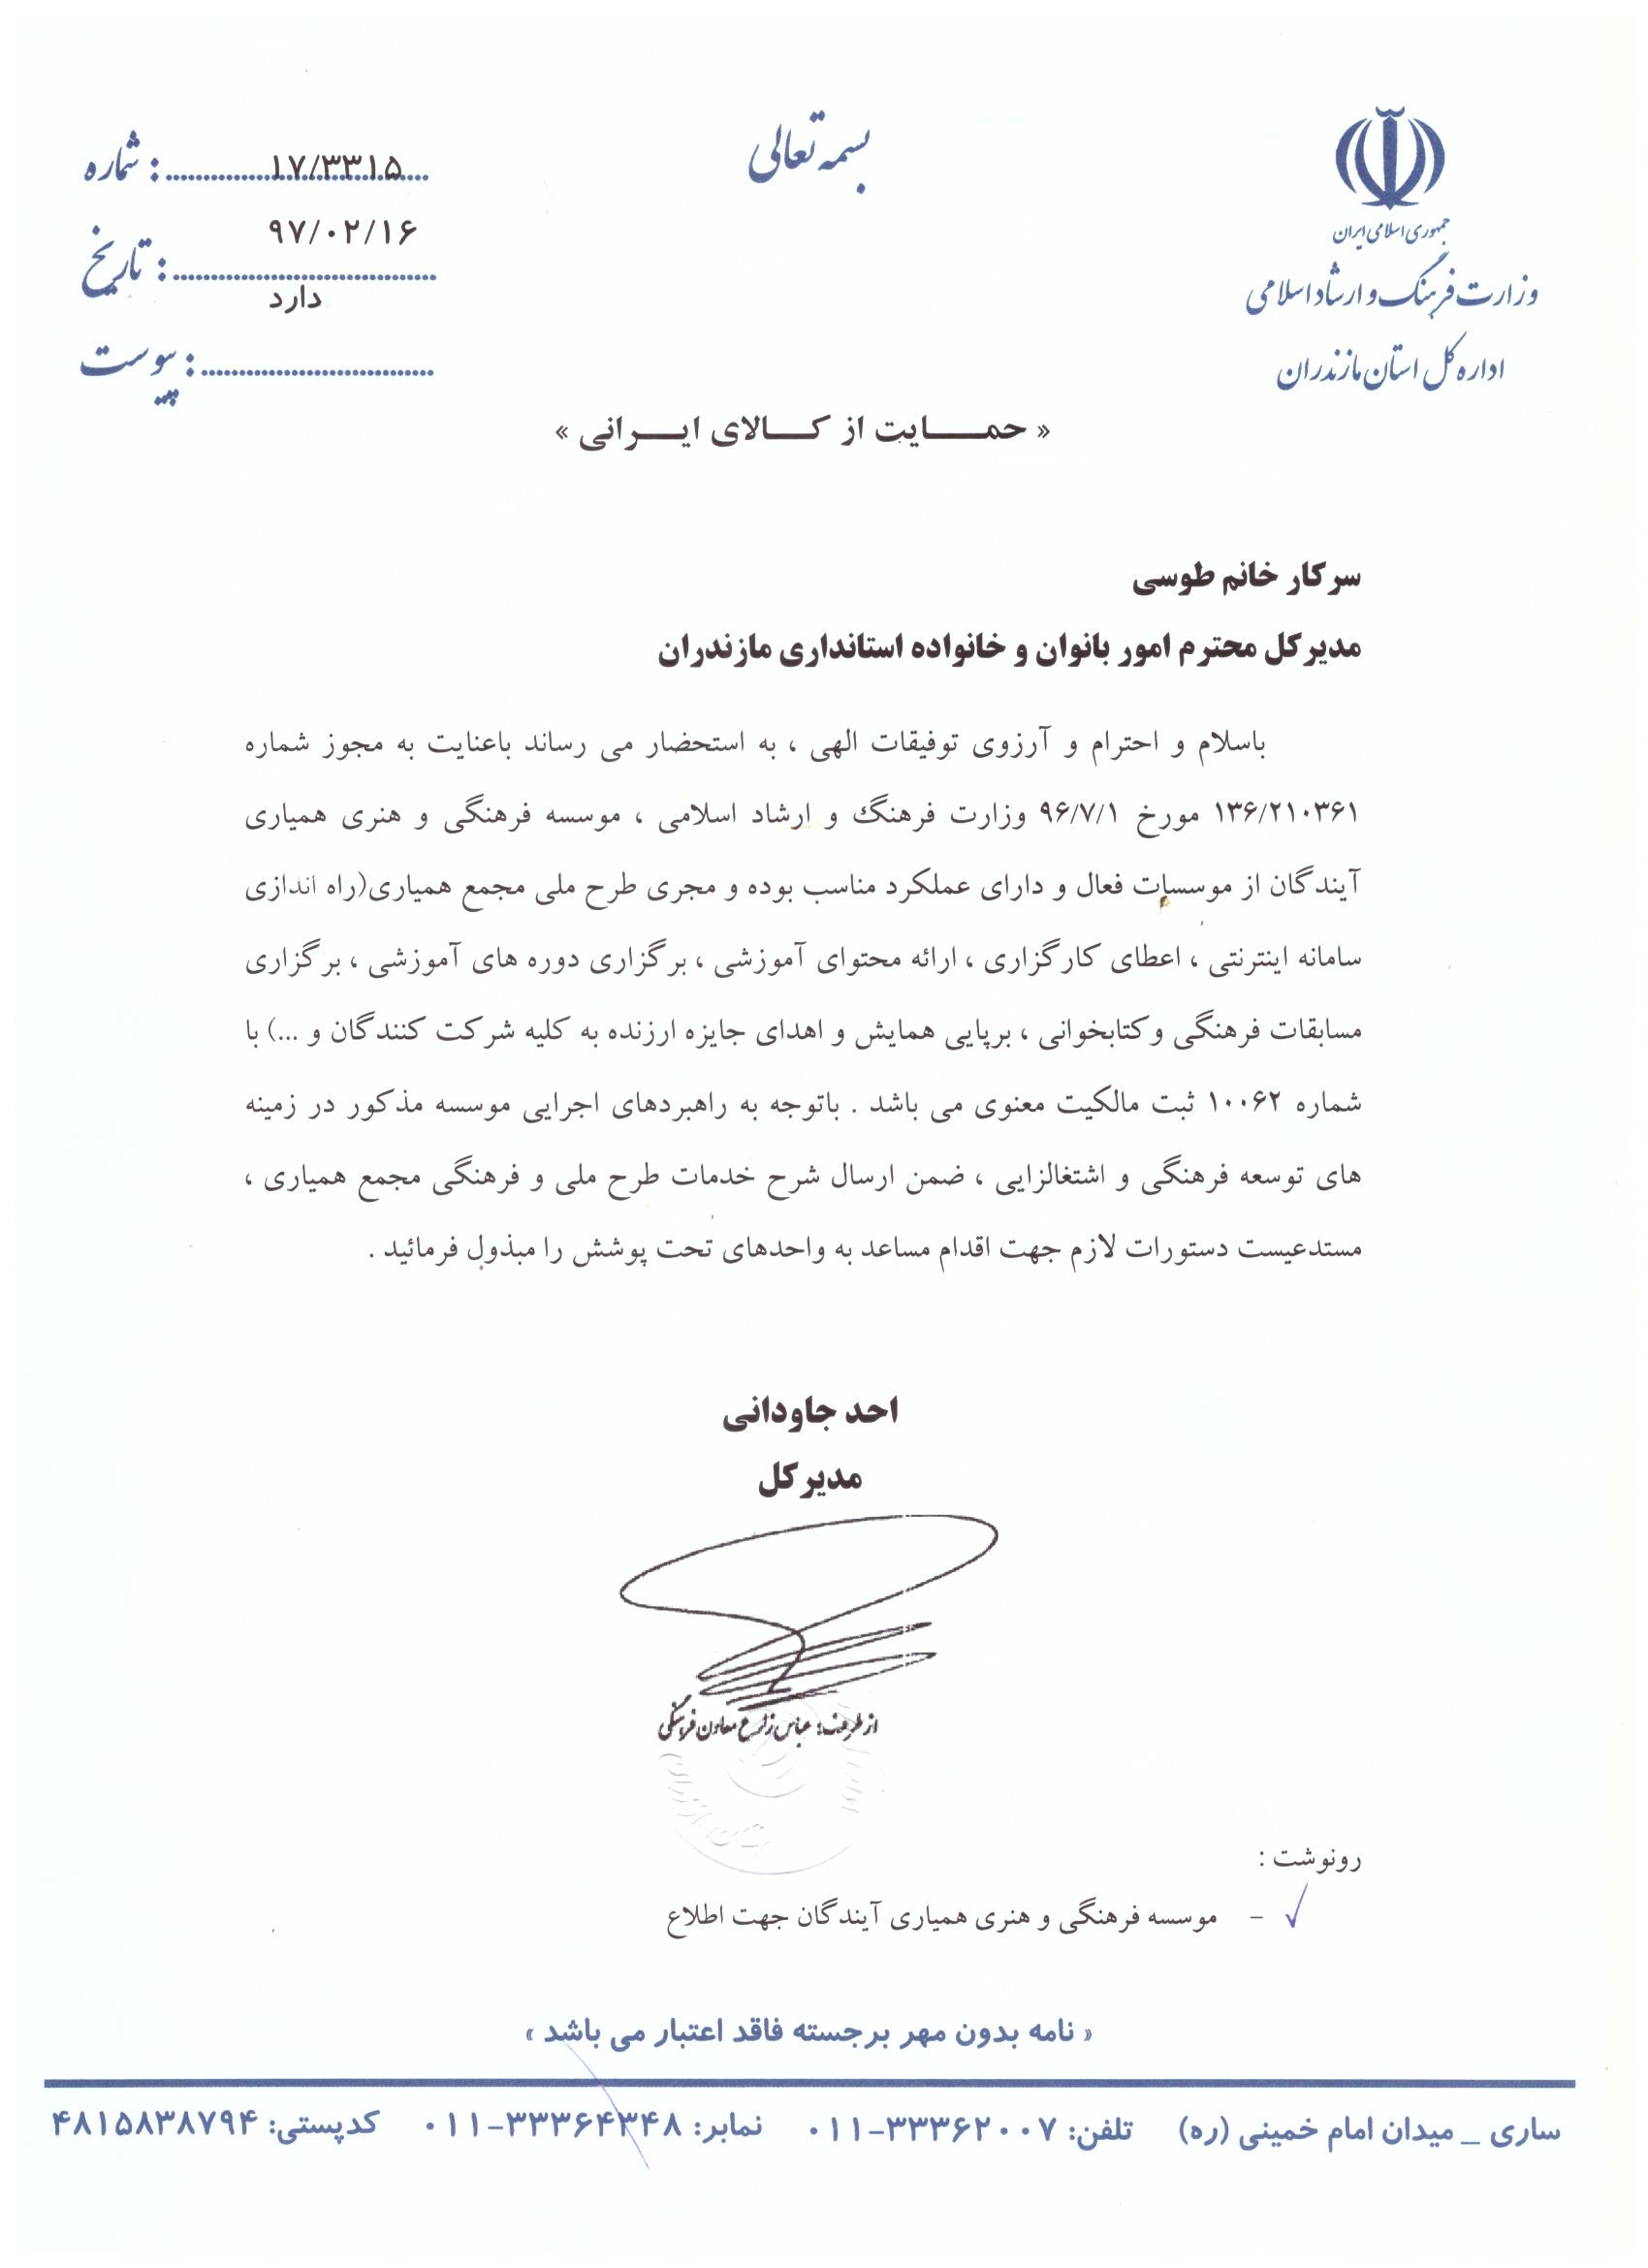 بسمه تعالی
جمهوری اسلامی ایران
وزارت فرهنگ و ارشاد اسلامی
اداره کل استان مازندران
شماره : ۱۷/۳۳۱۵
تاریخ : ۹۷/۰۲/۱۶
پیوست : دارد
« حمـــــایت از کـــالای ایـــرانی »
سرکار خانم طوسی
مدیرکل محترم امور بانوان و خانواده استانداری مازندران
باسلام و احترام و آرزوی توفیقات الهی ، به استحضار می رساند باعنایت به مجوز شماره
۱۳۶/۲۱۰۳۶۱ مورخ ۹۶/۷/۱ وزارت فرهنگ و ارشاد اسلامی ، موسسه فرهنگی و هنری همیاری
آیندگان از موسسات فعال و دارای عملکرد مناسب بوده و مجری طرح ملی مجمع همیاری(راه اندازی
سامانه اینترنتی ، اعطای کارگزاری ، ارائه محتوای آموزشی ، برگزاری دوره های آموزشی ، برگزاری
مسابقات فرهنگی و کتابخوانی ، برپایی همایش و اهدای جایزه ارزنده به کلیه شرکت کنندگان و ...) با
شماره ۱۰۰۶۲ ثبت مالکیت معنوی می باشد . باتوجه به راهبردهای اجرایی موسسه مذکور در زمینه
های توسعه فرهنگی و اشتغالزایی ، ضمن ارسال شرح خدمات طرح ملی و فرهنگی مجمع همیاری ،
مستدعیست دستورات لازم جهت اقدام مساعد به واحدهای تحت پوشش را مبذول فرمائید .
احد جاودانی
مدیرکل
از طرف: عباس زارع معاون فرهنگی
رونوشت :
- موسسه فرهنگی و هنری همیاری آیندگان جهت اطلاع
« نامه بدون مهر برجسته فاقد اعتبار می باشد »
ساری _ میدان امام خمینی (ره) تلفن: ۳۳۳۶۲۰۰۷-۰۱۱ نمابر: ۳۳۳۶۴۳۴۸-۰۱۱ کدپستی: ۴۸۱۵۸۳۸۷۹۴